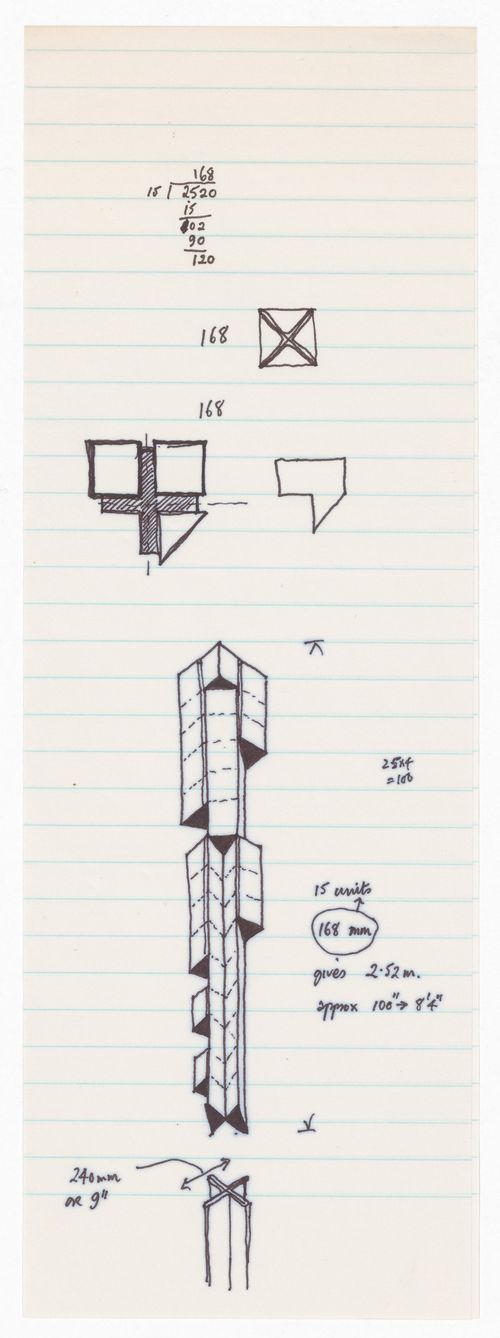 168
15 2520
15
102
90
120
168
168
25x4
=100
15 units
168 mm
gives 2.52m.
approx 100" → 8'4"
240mm
or 9"